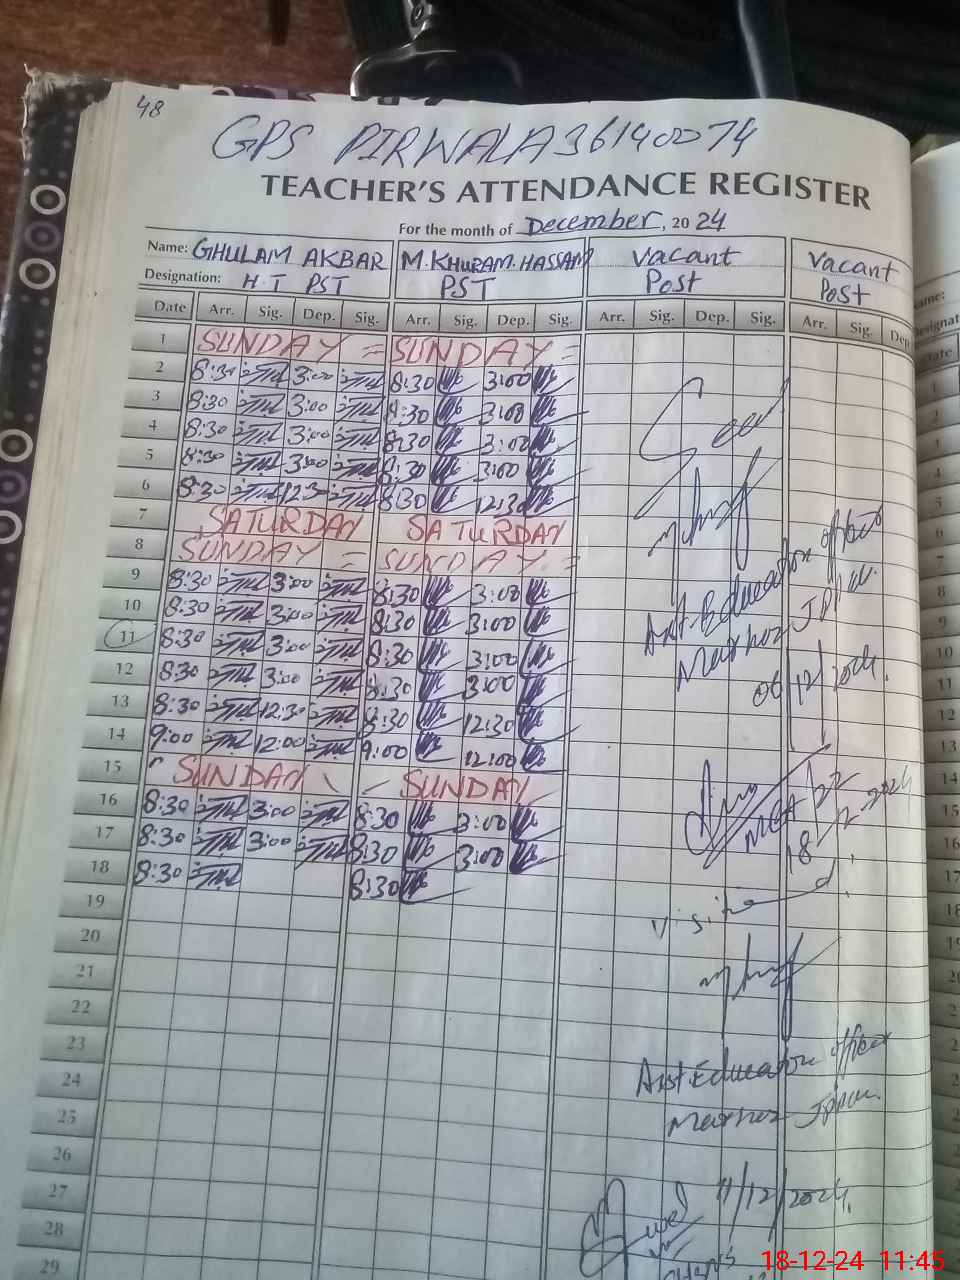 48
GPS PIRWALA 36140074
TEACHER'S ATTENDANCE REGISTER
For the month of December, 2024
Name: GHULAM AKBAR M. KHURAM HASSAN Vacant Vacant
Designation: H T PST PST Post Post
Date Arr. Sig. Dep. Sig. Arr. Sig. Dep. Sig. Arr. Sig. Dep. Sig. Arr. Sig. Dep
1 SUNDAY = SUNDAY =
2 8:30 3:00 8:30 3:00
3 8:30 3:00 8:30 3:00
4 8:30 3:00 8:30 3:00
5 8:30 3:00 8:30 3:00
6 8:30 12:30 8:30 12:30
7 SATURDAY SATURDAY
8 SUNDAY = SUNDAY =
9 8:30 3:00 8:30 3:00
10 8:30 3:00 8:30 3:00
11 8:30 3:00 8:30 3:00
12 8:30 3:00 8:30 3:00
13 8:30 12:30 8:30 12:30
14 9:00 12:00 9:00 12:00
15 SUNDAY SUNDAY
16 8:30 3:00 8:30 3:00
17 8:30 3:00 8:30 3:00
18 8:30 8:30
19
20
21
22
23
24
25
26
27
28
29
Seen
Asst. Education officer
06/12/2024.
MEA/22
18/12-2024
Visited
Asst. Education officer
11/12/2024,
18-12-24 11:45